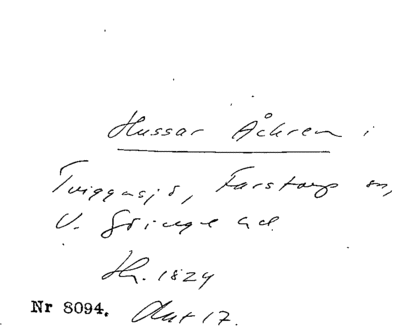 Hussar Åkrem i
Tviggasjö, Farstorp sn,
V. Göinge hd.
Hh. 1824
Nr 8094. Aut 17.